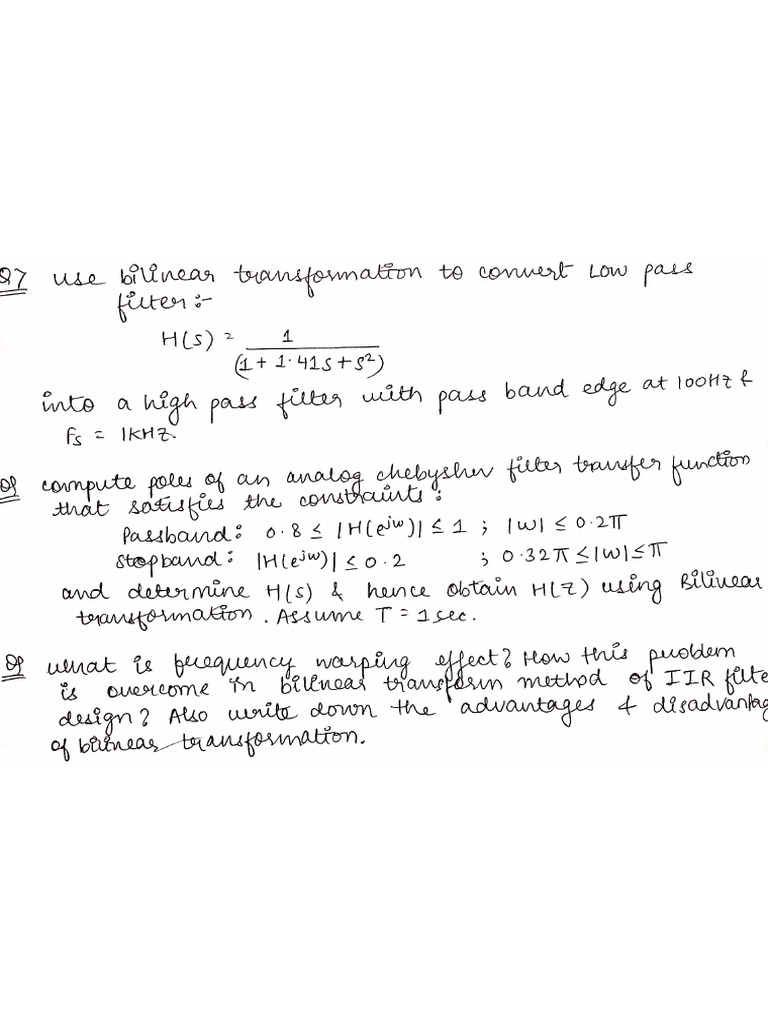 Q7 use bilinear transformation to convert Low pass
filter :-
H(s) = 1
(1 + 1.41s + s²)
into a high pass filter with pass band edge at 100Hz &
Fs = 1KHZ.
Q8 compute poles of an analog chebyshev filter transfer function
that satisfies the constraints :
Passband : 0.8 ≤ |H(e^jw)| ≤ 1 ; |w| ≤ 0.2π
Stopband : |H(e^jw)| ≤ 0.2 ; 0.32π ≤ |w| ≤ π
and determine H(s) & hence obtain H(Z) using Bilinear
transformation. Assume T = 1 sec.
what is frequency warping effect? How this problem
is overcome in bilinear transform method of IIR filte
design? Also write down the advantages & disadvantag
of bilinear transformation.